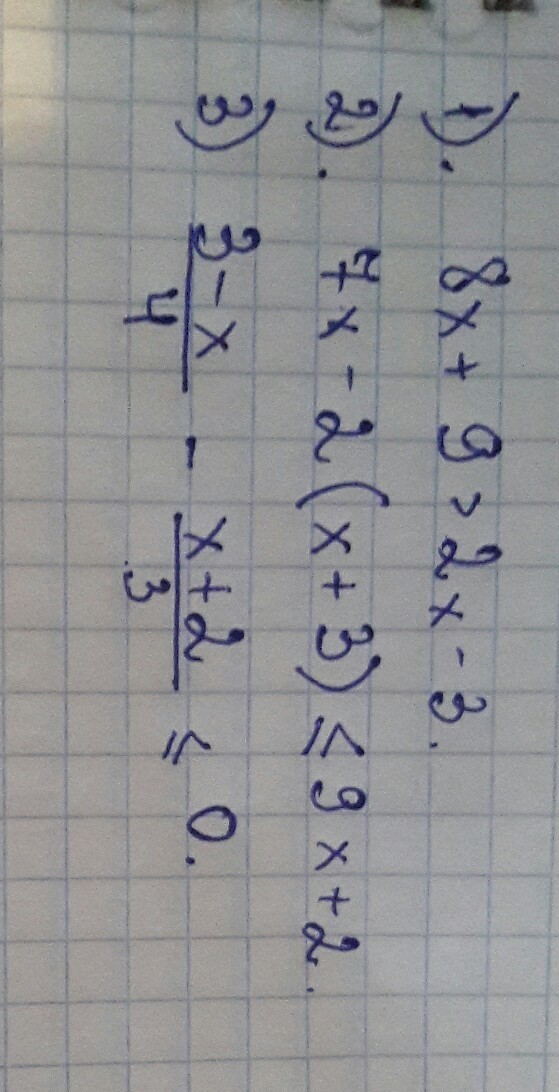 1). 8x + 9 > 2x - 3.
2). 7x - 2(x + 3) ≤ 9x + 2.
3) \frac{3-x}{4} - \frac{x+2}{3} ≤ 0.